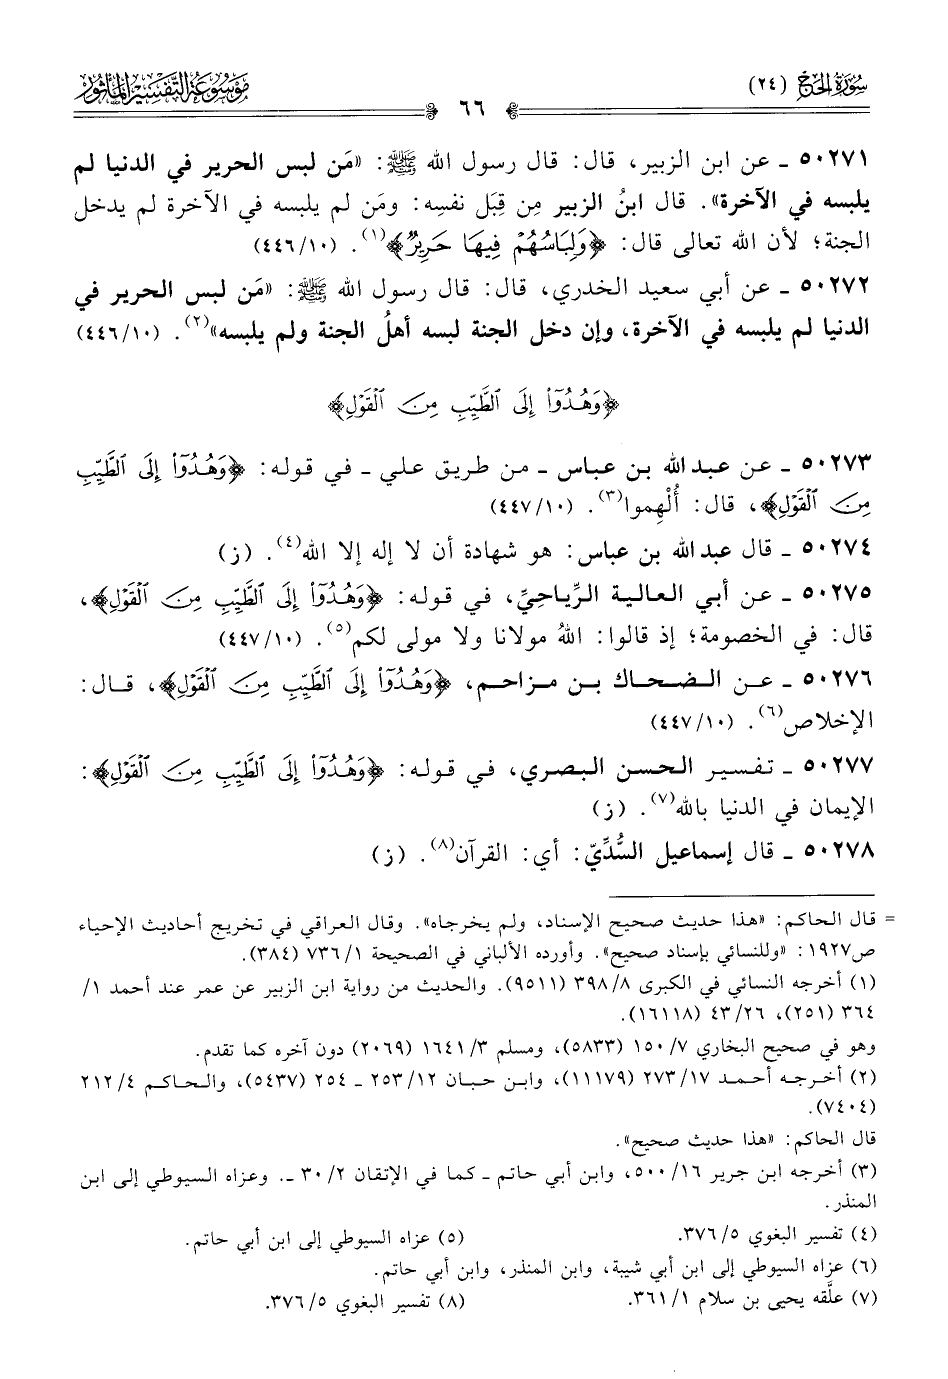 سُورَةُ الحَجّ (٢٤)
٦٦
مَوْسُوعَة التَّفْسِيْر المَأثُور
٥٠٢٧١ ـ عن ابن الزبير، قال: قال رسول الله ﷺ: «مَن لبس الحرير في الدنيا لم
يلبسه في الآخرة». قال ابنُ الزبير مِن قِبَل نفسِه: ومَن لم يلبسه في الآخرة لم يدخل
الجنة؛ لأن الله تعالى قال: ﴿وَلِبَاسُهُمْ فِيهَا حَرِيرٌ﴾(١). (٤٤٦/١٠)
٥٠٢٧٢ ـ عن أبي سعيد الخدري، قال: قال رسول الله ﷺ: «مَن لبس الحرير في
الدنيا لم يلبسه في الآخرة، وإن دخل الجنة لبسه أهلُ الجنة ولم يلبسه»(٢). (٤٤٦/١٠)
﴿وَهُدُوٓاْ إِلَى ٱلطَّيِّبِ مِنَ ٱلْقَوْلِ﴾
٥٠٢٧٣ ـ عن عبد الله بن عباس ـ من طريق علي ـ في قوله: ﴿وَهُدُوٓاْ إِلَى ٱلطَّيِّبِ
مِنَ ٱلْقَوْلِ﴾، قال: أُلْهِموا(٣). (٤٤٧/١٠)
٥٠٢٧٤ ـ قال عبد الله بن عباس: هو شهادة أن لا إله إلا الله(٤). (ز)
٥٠٢٧٥ ـ عن أبي العالية الرِّياحِيِّ، في قوله: ﴿وَهُدُوٓاْ إِلَى ٱلطَّيِّبِ مِنَ ٱلْقَوْلِ﴾،
قال: في الخصومة؛ إذ قالوا: اللهُ مولانا ولا مولى لكم(٥). (٤٤٧/١٠)
٥٠٢٧٦ ـ عن الضحاك بن مزاحم، ﴿وَهُدُوٓاْ إِلَى ٱلطَّيِّبِ مِنَ ٱلْقَوْلِ﴾، قال:
الإخلاص(٦). (٤٤٧/١٠)
٥٠٢٧٧ ـ تفسير الحسن البصري، في قوله: ﴿وَهُدُوٓاْ إِلَى ٱلطَّيِّبِ مِنَ ٱلْقَوْلِ﴾:
الإيمان في الدنيا بالله(٧). (ز)
٥٠٢٧٨ ـ قال إسماعيل السُّدِّيّ: أي: القرآن(٨). (ز)
= قال الحاكم: «هذا حديث صحيح الإسناد، ولم يخرجاه». وقال العراقي في تخريج أحاديث الإحياء
ص١٩٢٧: «وللنسائي بإسناد صحيح». وأورده الألباني في الصحيحة ٧٣٦/١ (٣٨٤).
(١) أخرجه النسائي في الكبرى ٣٩٨/٨ (٩٥١١). والحديث من رواية ابن الزبير عن عمر عند أحمد ١/
٣٦٤ (٢٥١)، ٤٣/٢٦ (١٦١١٨).
وهو في صحيح البخاري ١٥٠/٧ (٥٨٣٣)، ومسلم ١٦٤١/٣ (٢٠٦٩) دون آخره كما تقدم.
(٢) أخرجه أحمد ٢٧٣/١٧ (١١١٧٩)، وابن حبان ٢٥٣/١٢ ـ ٢٥٤ (٥٤٣٧)، والحاكم ٢١٢/٤
(٧٤٠٤).
قال الحاكم: «هذا حديث صحيح».
(٣) أخرجه ابن جرير ٥٠٠/١٦، وابن أبي حاتم ـ كما في الإتقان ٣٠/٢ ـ. وعزاه السيوطي إلى ابن
المنذر.
(٤) تفسير البغوي ٣٧٦/٥.
(٥) عزاه السيوطي إلى ابن أبي حاتم.
(٦) عزاه السيوطي إلى ابن أبي شيبة، وابن المنذر، وابن أبي حاتم.
(٧) علَّقه يحيى بن سلام ٣٦١/١.
(٨) تفسير البغوي ٣٧٦/٥.